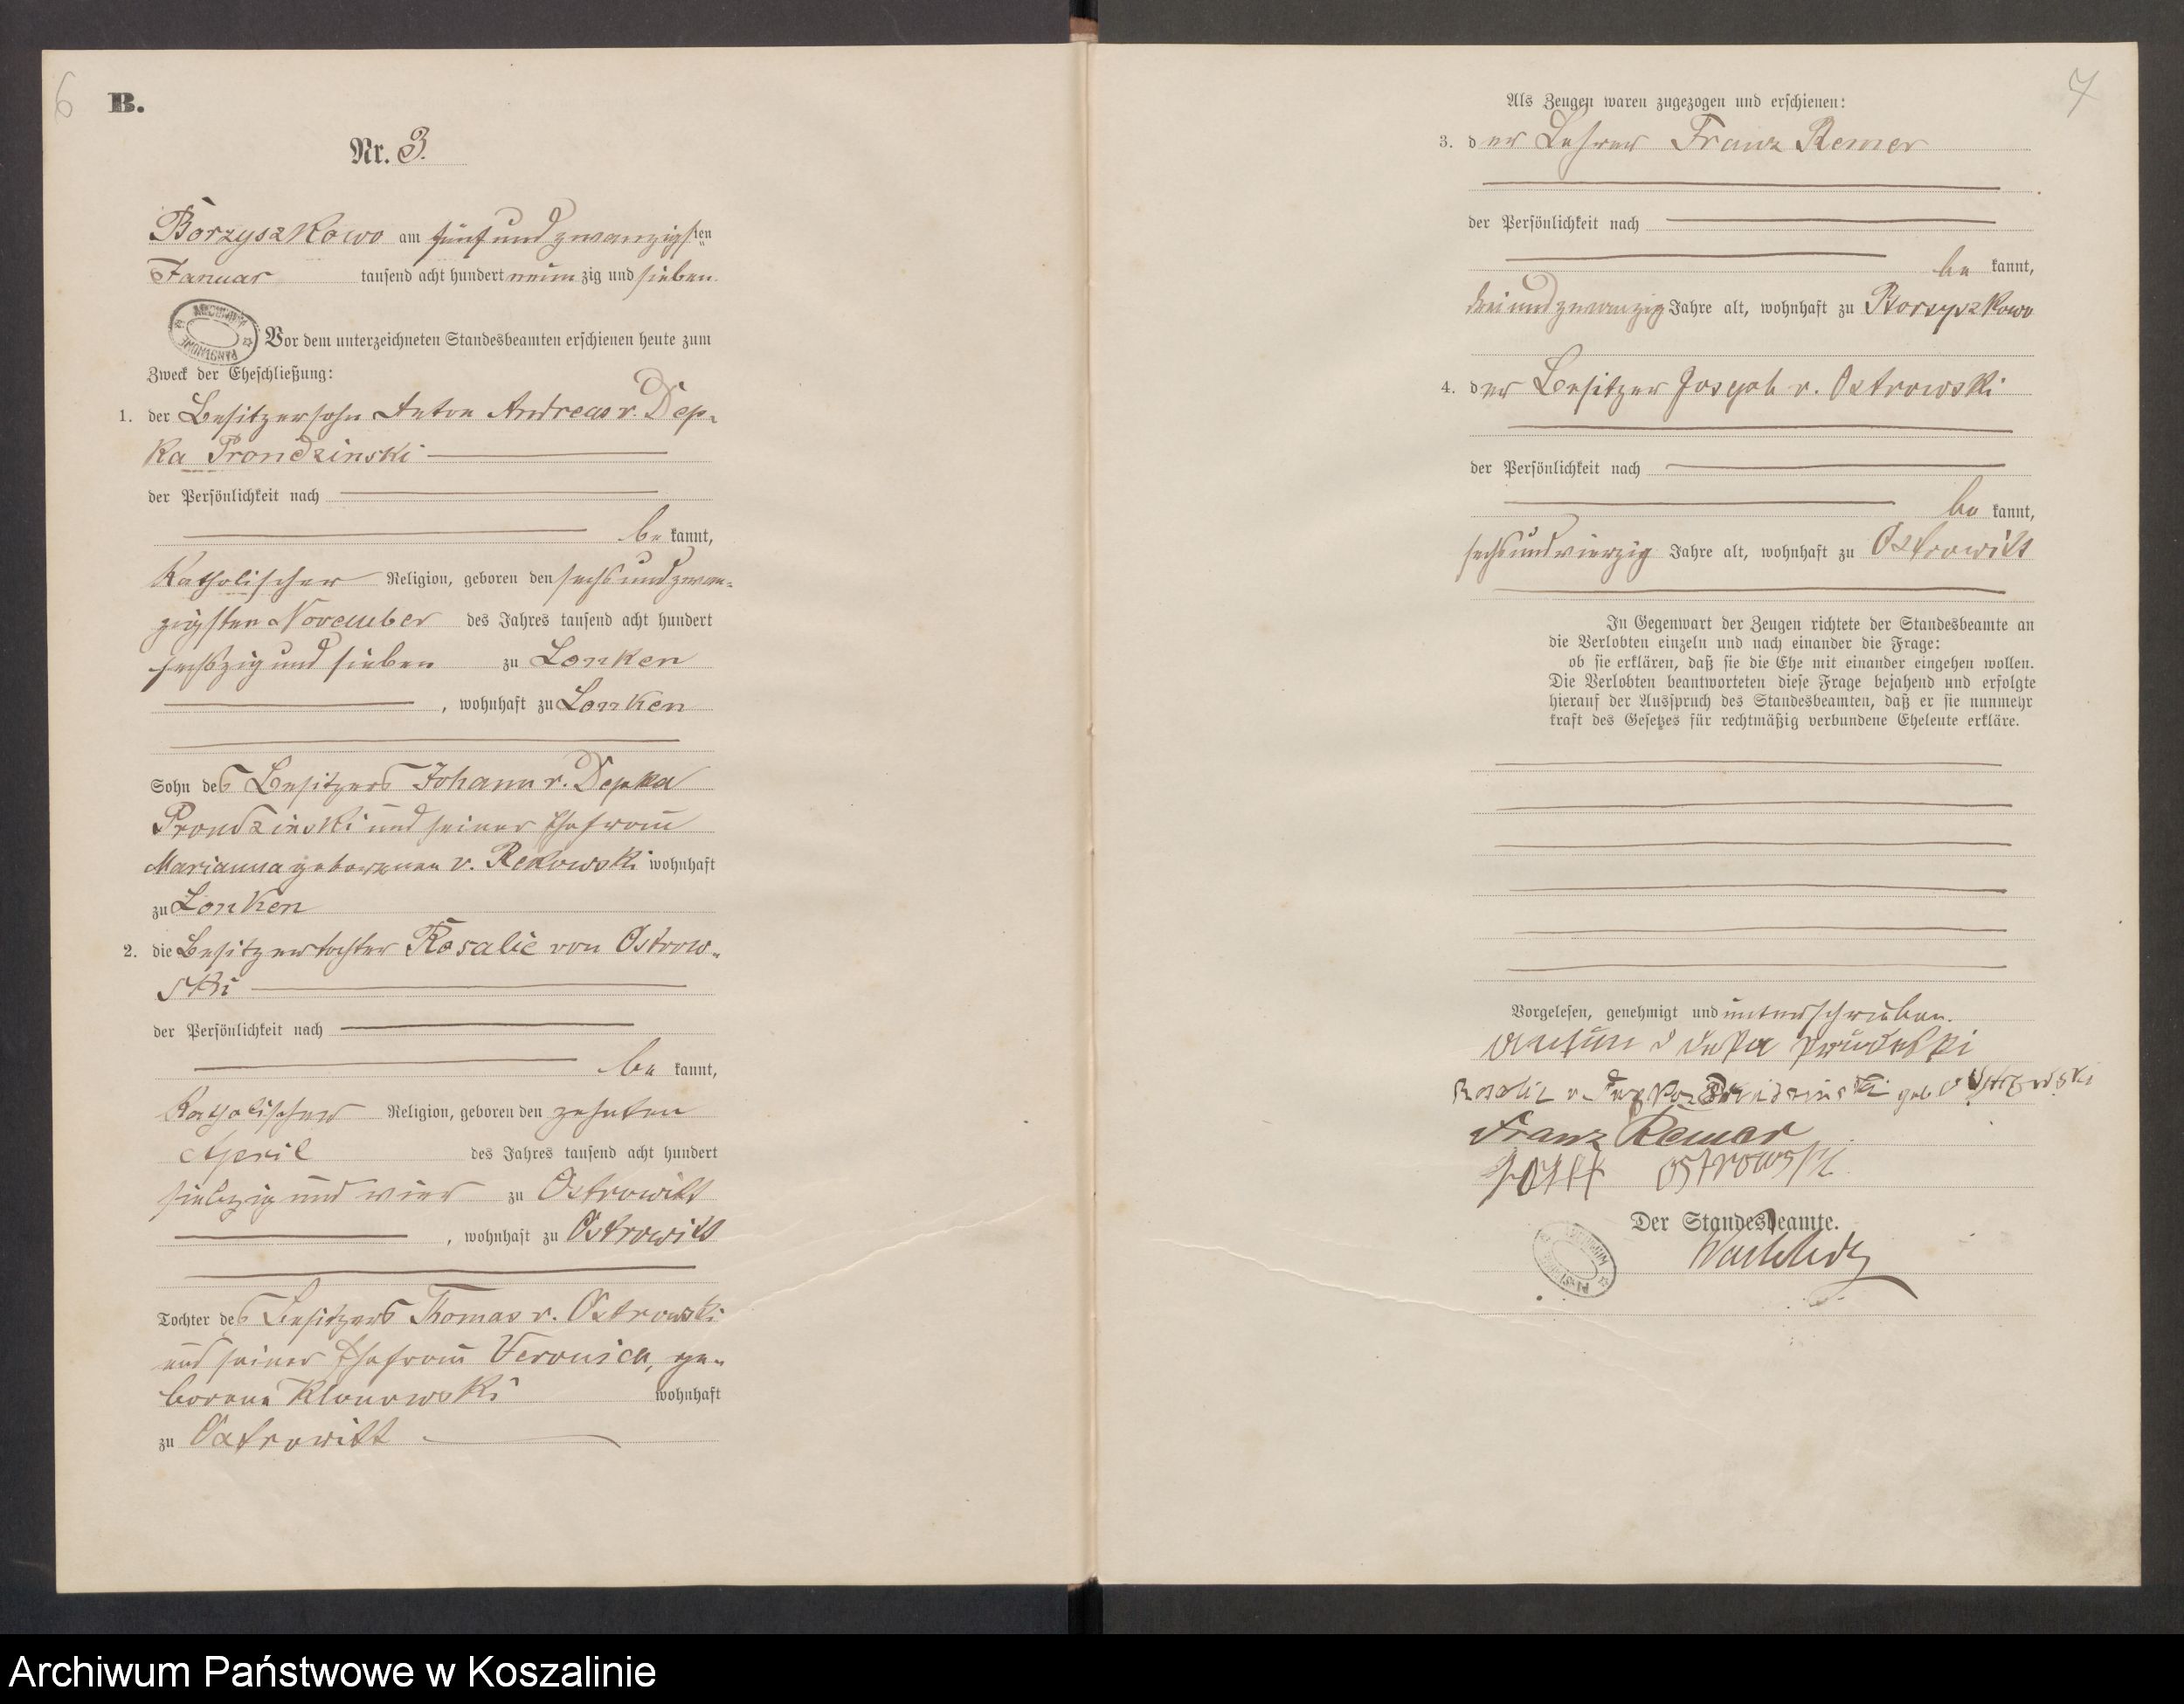 6
B.
Nr. 3.
Borzyszkowo am fünfundzwanzigsten
Januar tausend acht hundert neunzig und sieben.
Vor dem unterzeichneten Standesbeamten erschienen heute zum
Zweck der Eheschließung:
1. der Besitzersohn Anton Andreas v. Dep-
ka Prondzinski
der Persönlichkeit nach
be kannt,
Katholischer Religion, geboren den sechsundzwan-
zigsten November des Jahres tausend acht hundert
sechszig und sieben zu Lonken
, wohnhaft zu Lonken
Sohn des Besitzers Johann v. Depka
Prondzinski und seiner Ehefrau
Marianna geborenen v. Rekowski wohnhaft
zu Lonken
2. die Besitzertochter Rosalie von Ostrow-
ski
der Persönlichkeit nach
be kannt,
Katholischer Religion, geboren den zehnten
April des Jahres tausend acht hundert
siebzig und vier zu Ostrowitt
, wohnhaft zu Ostrowitt
Tochter des Besitzers Thomas v. Ostrowski
und seiner Ehefrau Veronica, ge-
borene Klonowski wohnhaft
zu Ostrowitt
7
Als Zeugen waren zugezogen und erschienen:
3. der Lehrer Franz Remer
der Persönlichkeit nach
be kannt,
dreiundzwanzig Jahre alt, wohnhaft zu Borzyszkowo
4. der Besitzer Joseph v. Ostrowski
der Persönlichkeit nach
be kannt,
sechsundvierzig Jahre alt, wohnhaft zu Ostrowitt
In Gegenwart der Zeugen richtete der Standesbeamte an
die Verlobten einzeln und nach einander die Frage:
ob sie erklären, daß sie die Ehe mit einander eingehen wollen.
Die Verlobten beantworteten diese Frage bejahend und erfolgte
hierauf der Ausspruch des Standesbeamten, daß er sie nunmehr
kraft des Gesetzes für rechtmäßig verbundene Eheleute erkläre.
Vorgelesen, genehmigt und unterschrieben.
Rosalie v. geb. v Ostrowski
Franz Remer
Ostrowski
Der Standesbeamte.
Archiwum Państwowe w Koszalinie